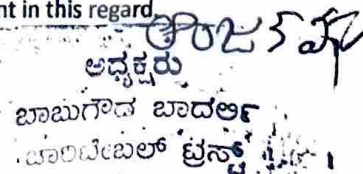 nt in this regard
ಅಧ್ಯಕ್ಷರು
ಬಾಬುಗೌಡ ಬಾದರ್ಲಿ
ಚಾರಿಟೇಬಲ್ ಟ್ರಸ್ಟ್